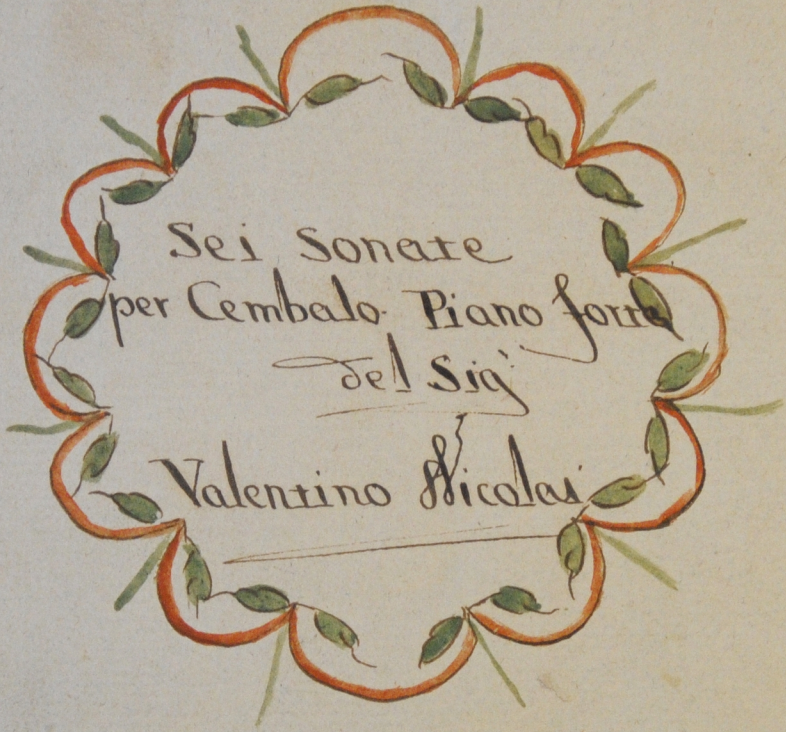 Sei Sonate
per Cembalo Piano forte
del Sig.
Valentino Nicolai